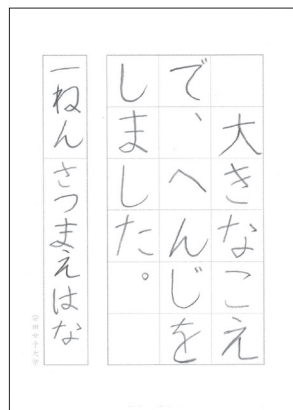 大きなこえ
で、へんじを
しました。
一ねん さつまえはな